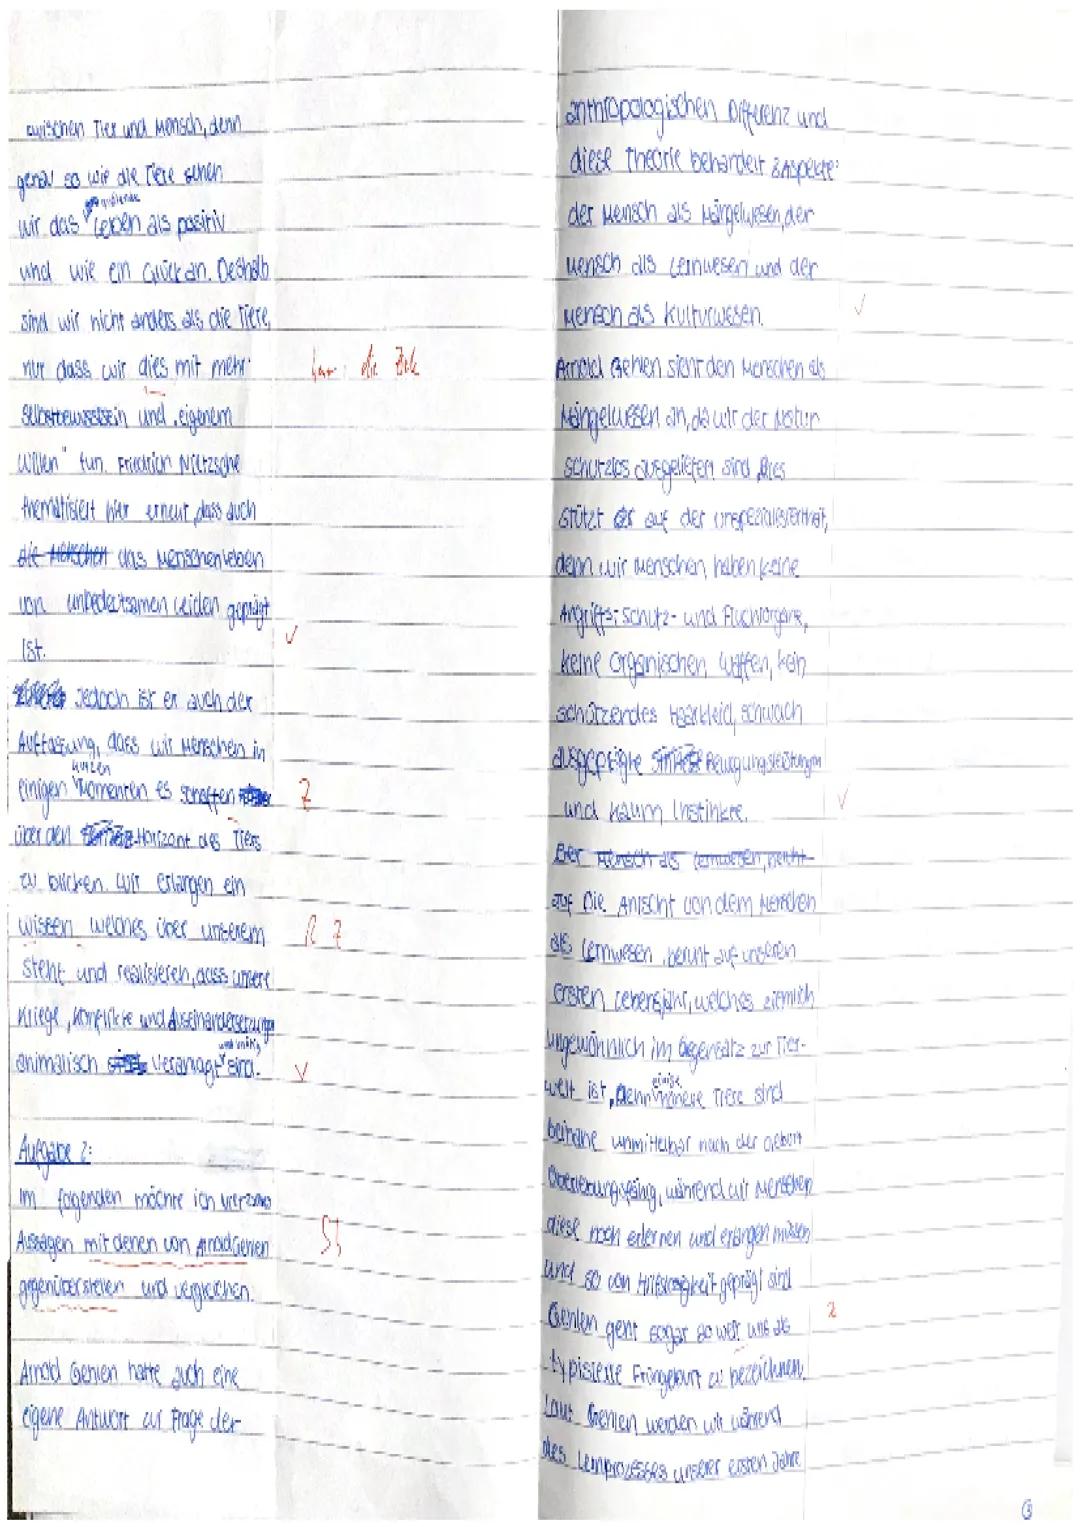 zwischen Tier und Mensch, denn
genau so wie die Tiere sehen
wir das Leben als positiv
und wie ein Glück an. Deshalb
sind wir nicht anders als die Tiere,
nur dass wir dies mit mehr
Selbstbewusstsein und „eigenem
Willen" tun. Friedrich Nietzsche
thematisiert hier erneut, dass auch
die Menschen das Menschenleben
von unbedeutsamen Leiden geprägt
ist. ✓
Jedoch ist er auch der
Auffassung, dass wir Menschen in
kurzen
einigen Momenten es schaffen Z
über den Horizont des Tiers
zu blicken. Wir erlangen ein
wissen welches über unserem R Z
steht und realisieren, dass unsere
Kriege, Konflikte und Auseinandersetzungen
animalisch veranlagt sind. ✓
Aufgabe 2:
Im folgenden möchte ich
Aussagen mit denen von Arnold Gehlen
gegenüberstellen und vergleichen.
Arnold Gehlen hatte auch eine
eigene Antwort zur Frage der
anthropologischen Differenz und
diese Theorie behandelt 3 Aspekte:
der Mensch als Mängelwesen, der
Mensch als Lernwesen und der
Mensch als Kulturwesen. ✓
Arnold Gehlen sieht den Menschen als
Mängelwesen an, da wir der Natur
schutzlos ausgeliefert sind. Dies
stützt er auf der Unspezialisiertheit,
denn wir Menschen, haben keine
Angriffs-, Schutz- und Fluchtorgane,
keine organischen Waffen, kein
schützendes Haarkleid, schwach
ausgeprägte Bewegungsleistungen
und kaum Instinkte. ✓
Der Mensch als Lernwesen,
Die Ansicht von dem Menschen
als Lernwesen, beruht auf unserem
ersten Lebensjahr, welches ziemlich
ungewöhnlich im Gegensatz zur Tier-
einige
welt ist. Denn höhere Tiere sind
beinahe unmittelbar nach der Geburt
überlebungsfähig, während wir Menschen
diese noch erlernen und erlangen müssen
und so von Hilfslosigkeit geprägt sind
Gehlen geht sogar so weit uns als
typisielle Frühgeburt zu bezeichnen.
Laut Gehlen werden wir während
des Lernprozesses unserer ersten Jahre
3